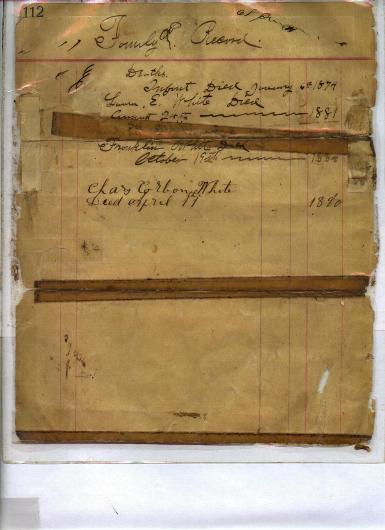 112
Family Record.
Deaths
Infant Died January 6th 1879
Laura E. White Died
August 24th 1881
Franklin White Died
October 19th 188
Chas White
Died April 17 1890